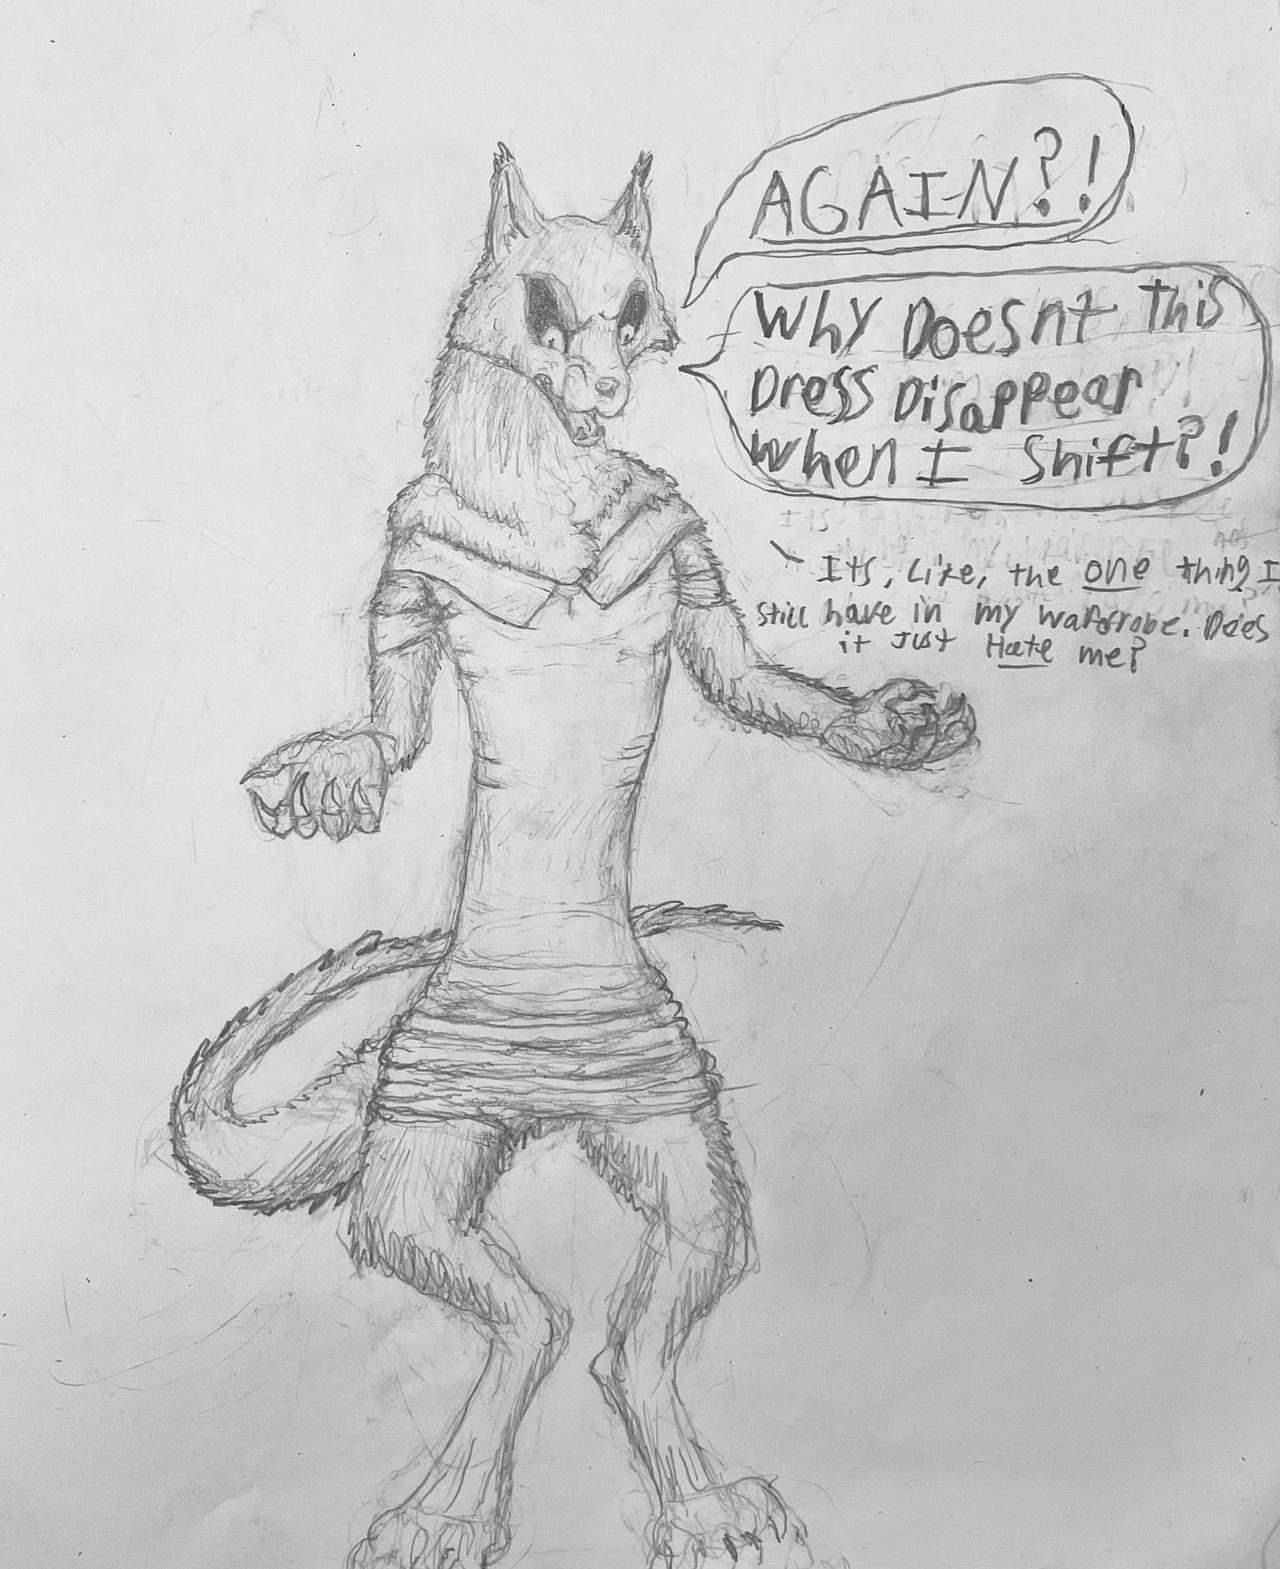 AGAIN?!
Why Doesnt This
Dress Disappear
When I Shift?!
Its, Like, the one thing I
still have in my wardrobe. Does
it Just Hate me?